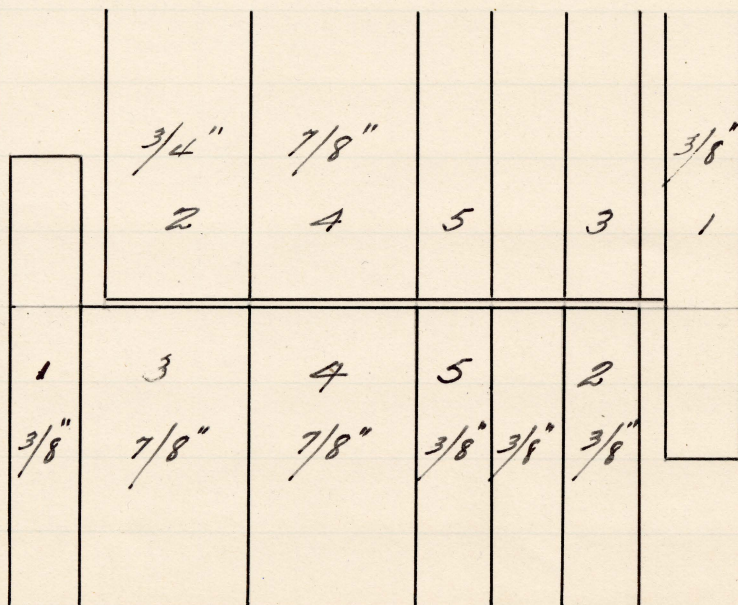 3/4" 7/8" 3/8"
2 4 5 3 1
1 3 4 5 2
3/8" 7/8" 7/8" 3/8" 3/8" 3/8"